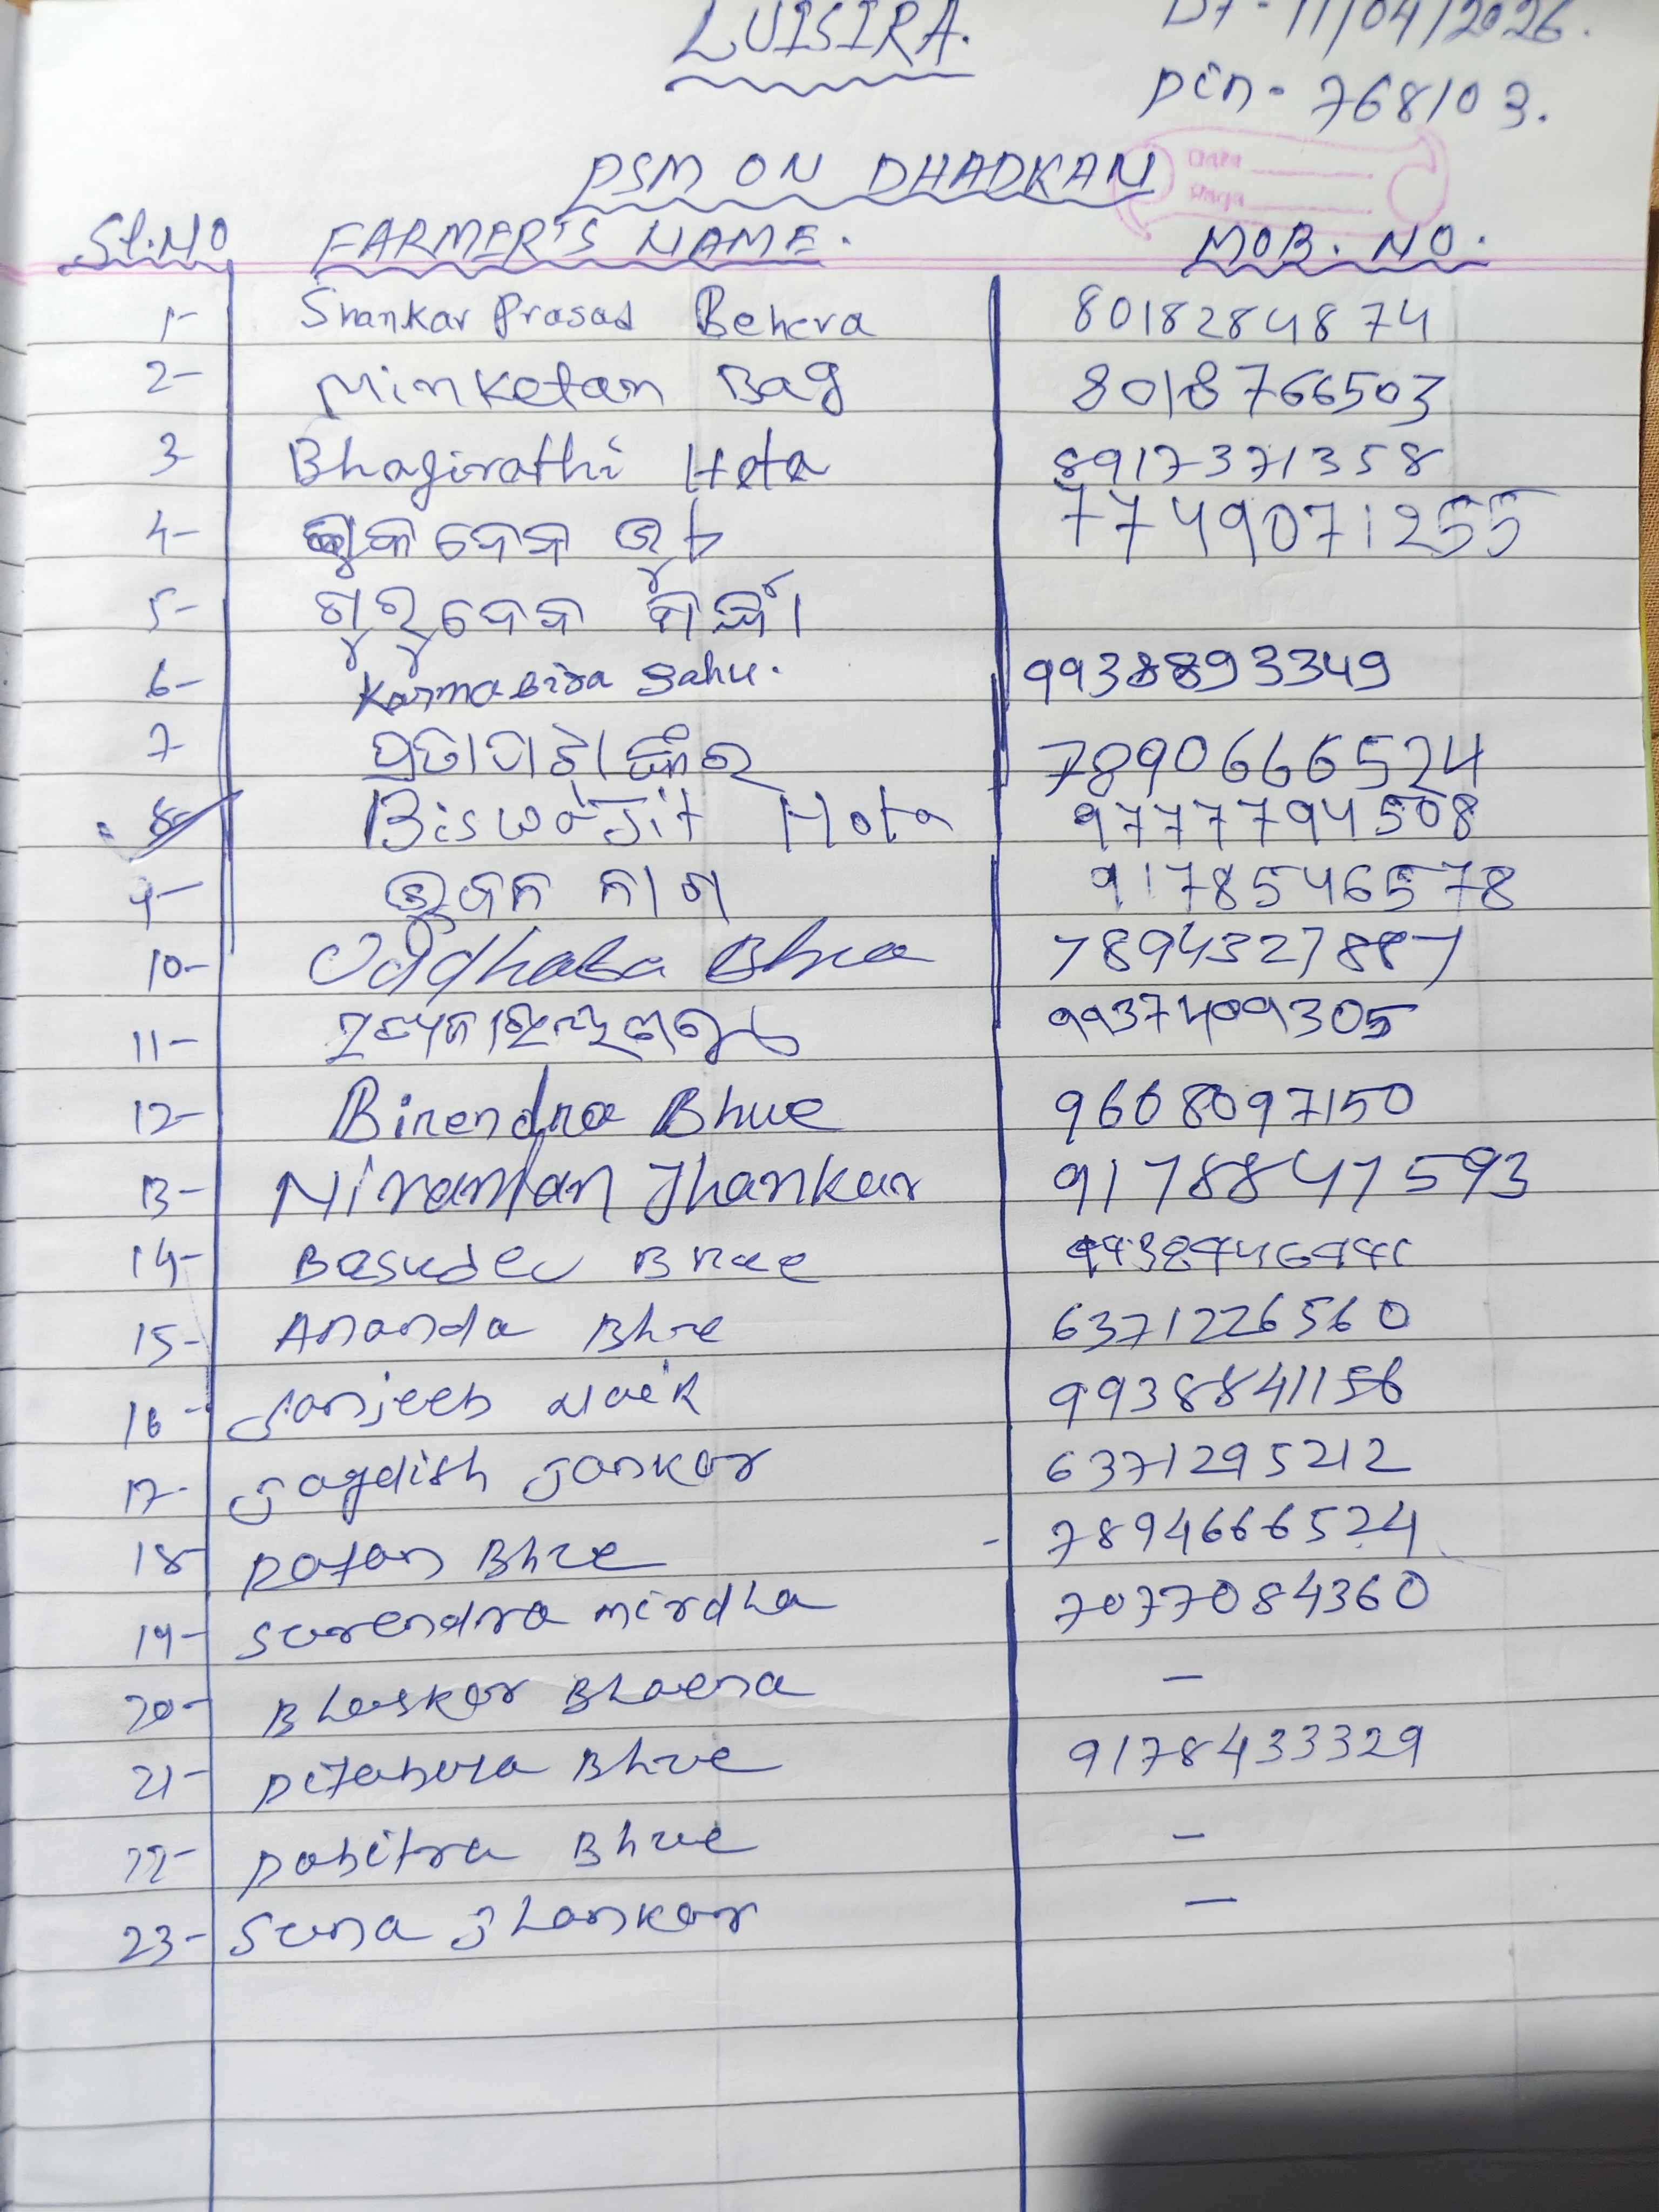 LUISIRA.
Dt - 11/04/2026.
Pin - 768103.
PSM ON DHADKAN
Date
Page
Sl.NO FARMER'S NAME. MOB. NO.
1- Shankar Prasad Behera 8018284874
2- Minketan Bag 8018766503
3- Bhagirathi Hota 8917371358
4- ଶୁକଦେବ ଭୁଏ 7749071255
5- ଗୁରୁଦେବ
6- Karmabira Sahu. 9938893349
7- ପ୍ରତାପ 78906666524
8- Biswajit Hota 9777794508
9- ନାଗ 9178546578
10- Uddhaba Bhue 7894327887
11- 9937409305
12- Birendra Bhue 9668097150
13- Niranjan Jhankar 9178847593
14- Basudev Bhue
15- Ananda Bhue 6371226560
16- Sanjeeb Naik 9938841156
17- Jagdish Jankar 6371295212
18- Ratan Bhue 7894666524
19- Surendra mirdha 7077084360
20- Bhaskar Bhaena -
21- Pitabasa Bhue 9178433329
22- Pabitra Bhue -
23- Suna Jhankar -